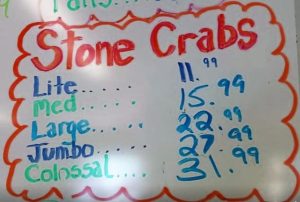 Stone Crabs
Lite..... 11.99
Med..... 15.99
Large..... 22.99
Jumbo..... 27.99
Colossal.... 31.99